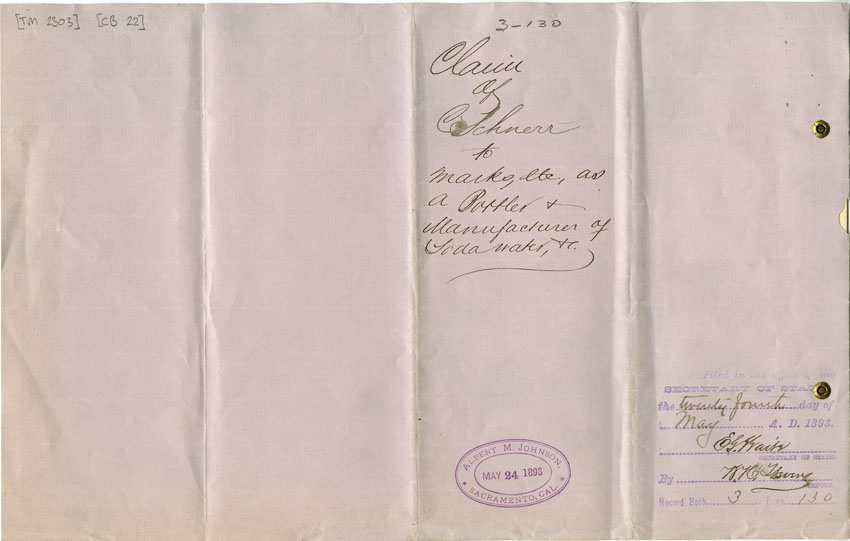 [TM 2303] [CB 22]
3-130
Claim
of
C Schnerr
to
Marks, etc, as
a Bottler &
Manufacturer of
Soda water, &c.
ALBERT M. JOHNSON
MAY 24 1893
SACRAMENTO, CAL.
Filed in the office of the
SECRETARY OF STATE
the twenty fourth day of
May A. D. 1893.
E. G. Waite
SECRETARY OF STATE
By
DEPUTY.
Record Book 3 Page 130